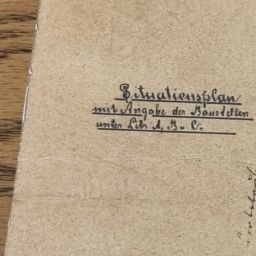 Situationsplan
mit Angabe der Baustellen
unter Litr A, B u. C.